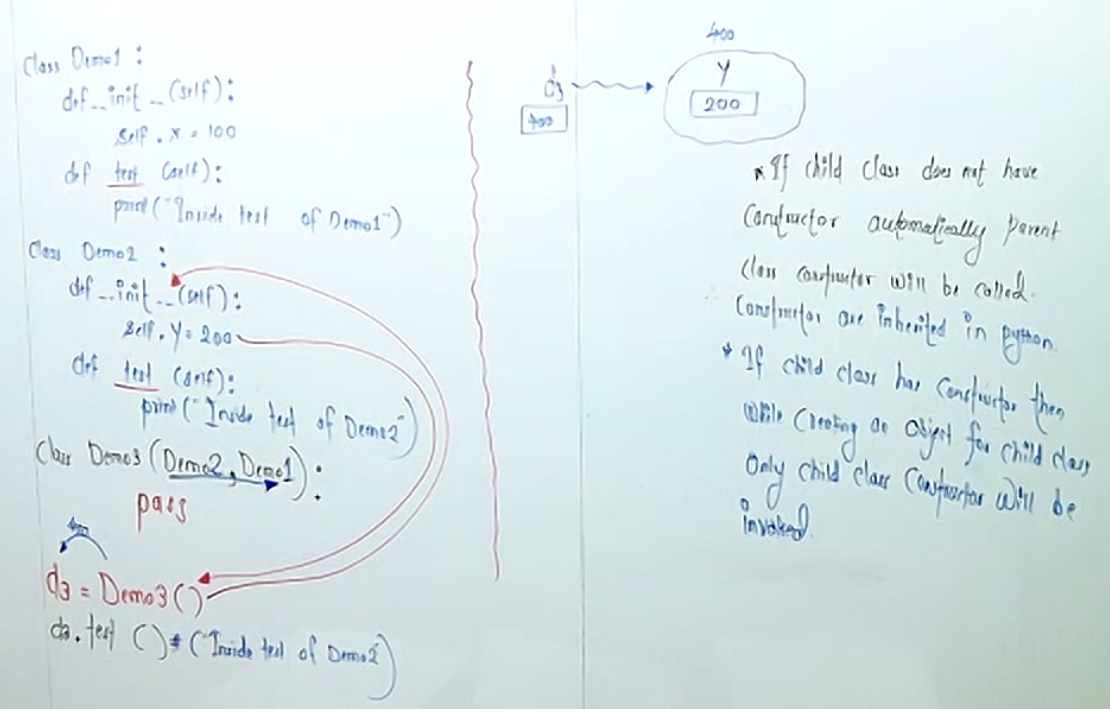 Class Demo1 :
def __init__(self):
self.x = 100
def test (self):
print("Inside test of Demo1")
Class Demo2 :
def __init__(self):
self.Y = 200
def test (self):
print("Inside test of Demo2")
Class Demo3 (Demo2, Demo1):
pass
400
d3 = Demo3()
d3.test () # ("Inside test of Demo2")
400
d3
Y
400
200
* If child class does not have
Constructor automatically parent
class constructor will be called.
∴ Constructor are inherited in python.
* If child class has constructor then
while creating an object for child class
Only child class Constructor will be
invoked.